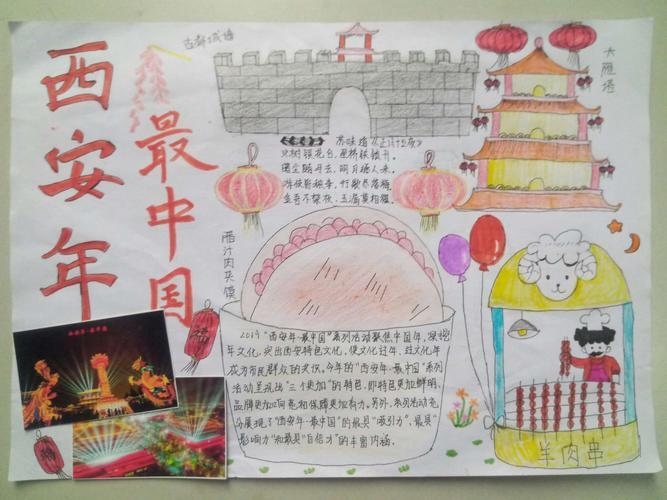 西安年
最中国
古都城墙
大雁塔
苏味道《正月十五夜》
火树银花合,星桥铁锁开。
暗尘随马去,明月逐人来。
游伎皆秾李,行歌尽落梅。
金吾不禁夜,玉漏莫相催。
腊汁肉夹馍
2019“西安年·最中国”系列活动聚焦中国年,深挖
年文化,突出西安特色文化,使文化过年、过文化年
成为市民群众的共识,今年的“西安年·最中国”系列
活动呈现出“三个更加”的特色,即特色更加鲜明、
品牌更加响亮和保障更加有力。另外,系列活动充
分展现了“西安年·最中国”的最具“吸引力”、最具“
影响力”和最具“自信力”的丰富内涵。
福
福
羊肉串